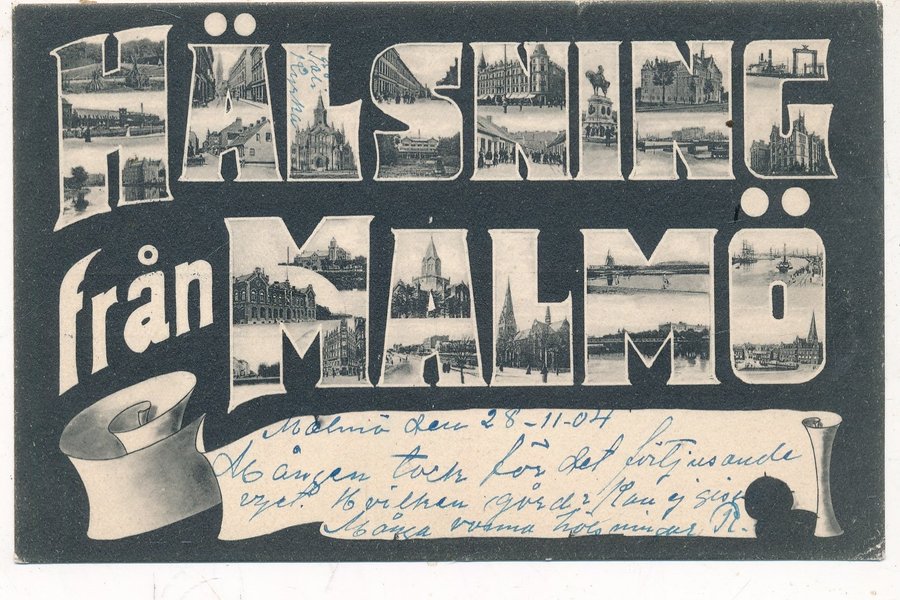 HÄLSNING
från MALMÖ
Kyrka
Malmö den 28-11-04
Mången tack för det förtjusande
vyet. Hvilken gård? Kan ej
Många varma hälsningar R.